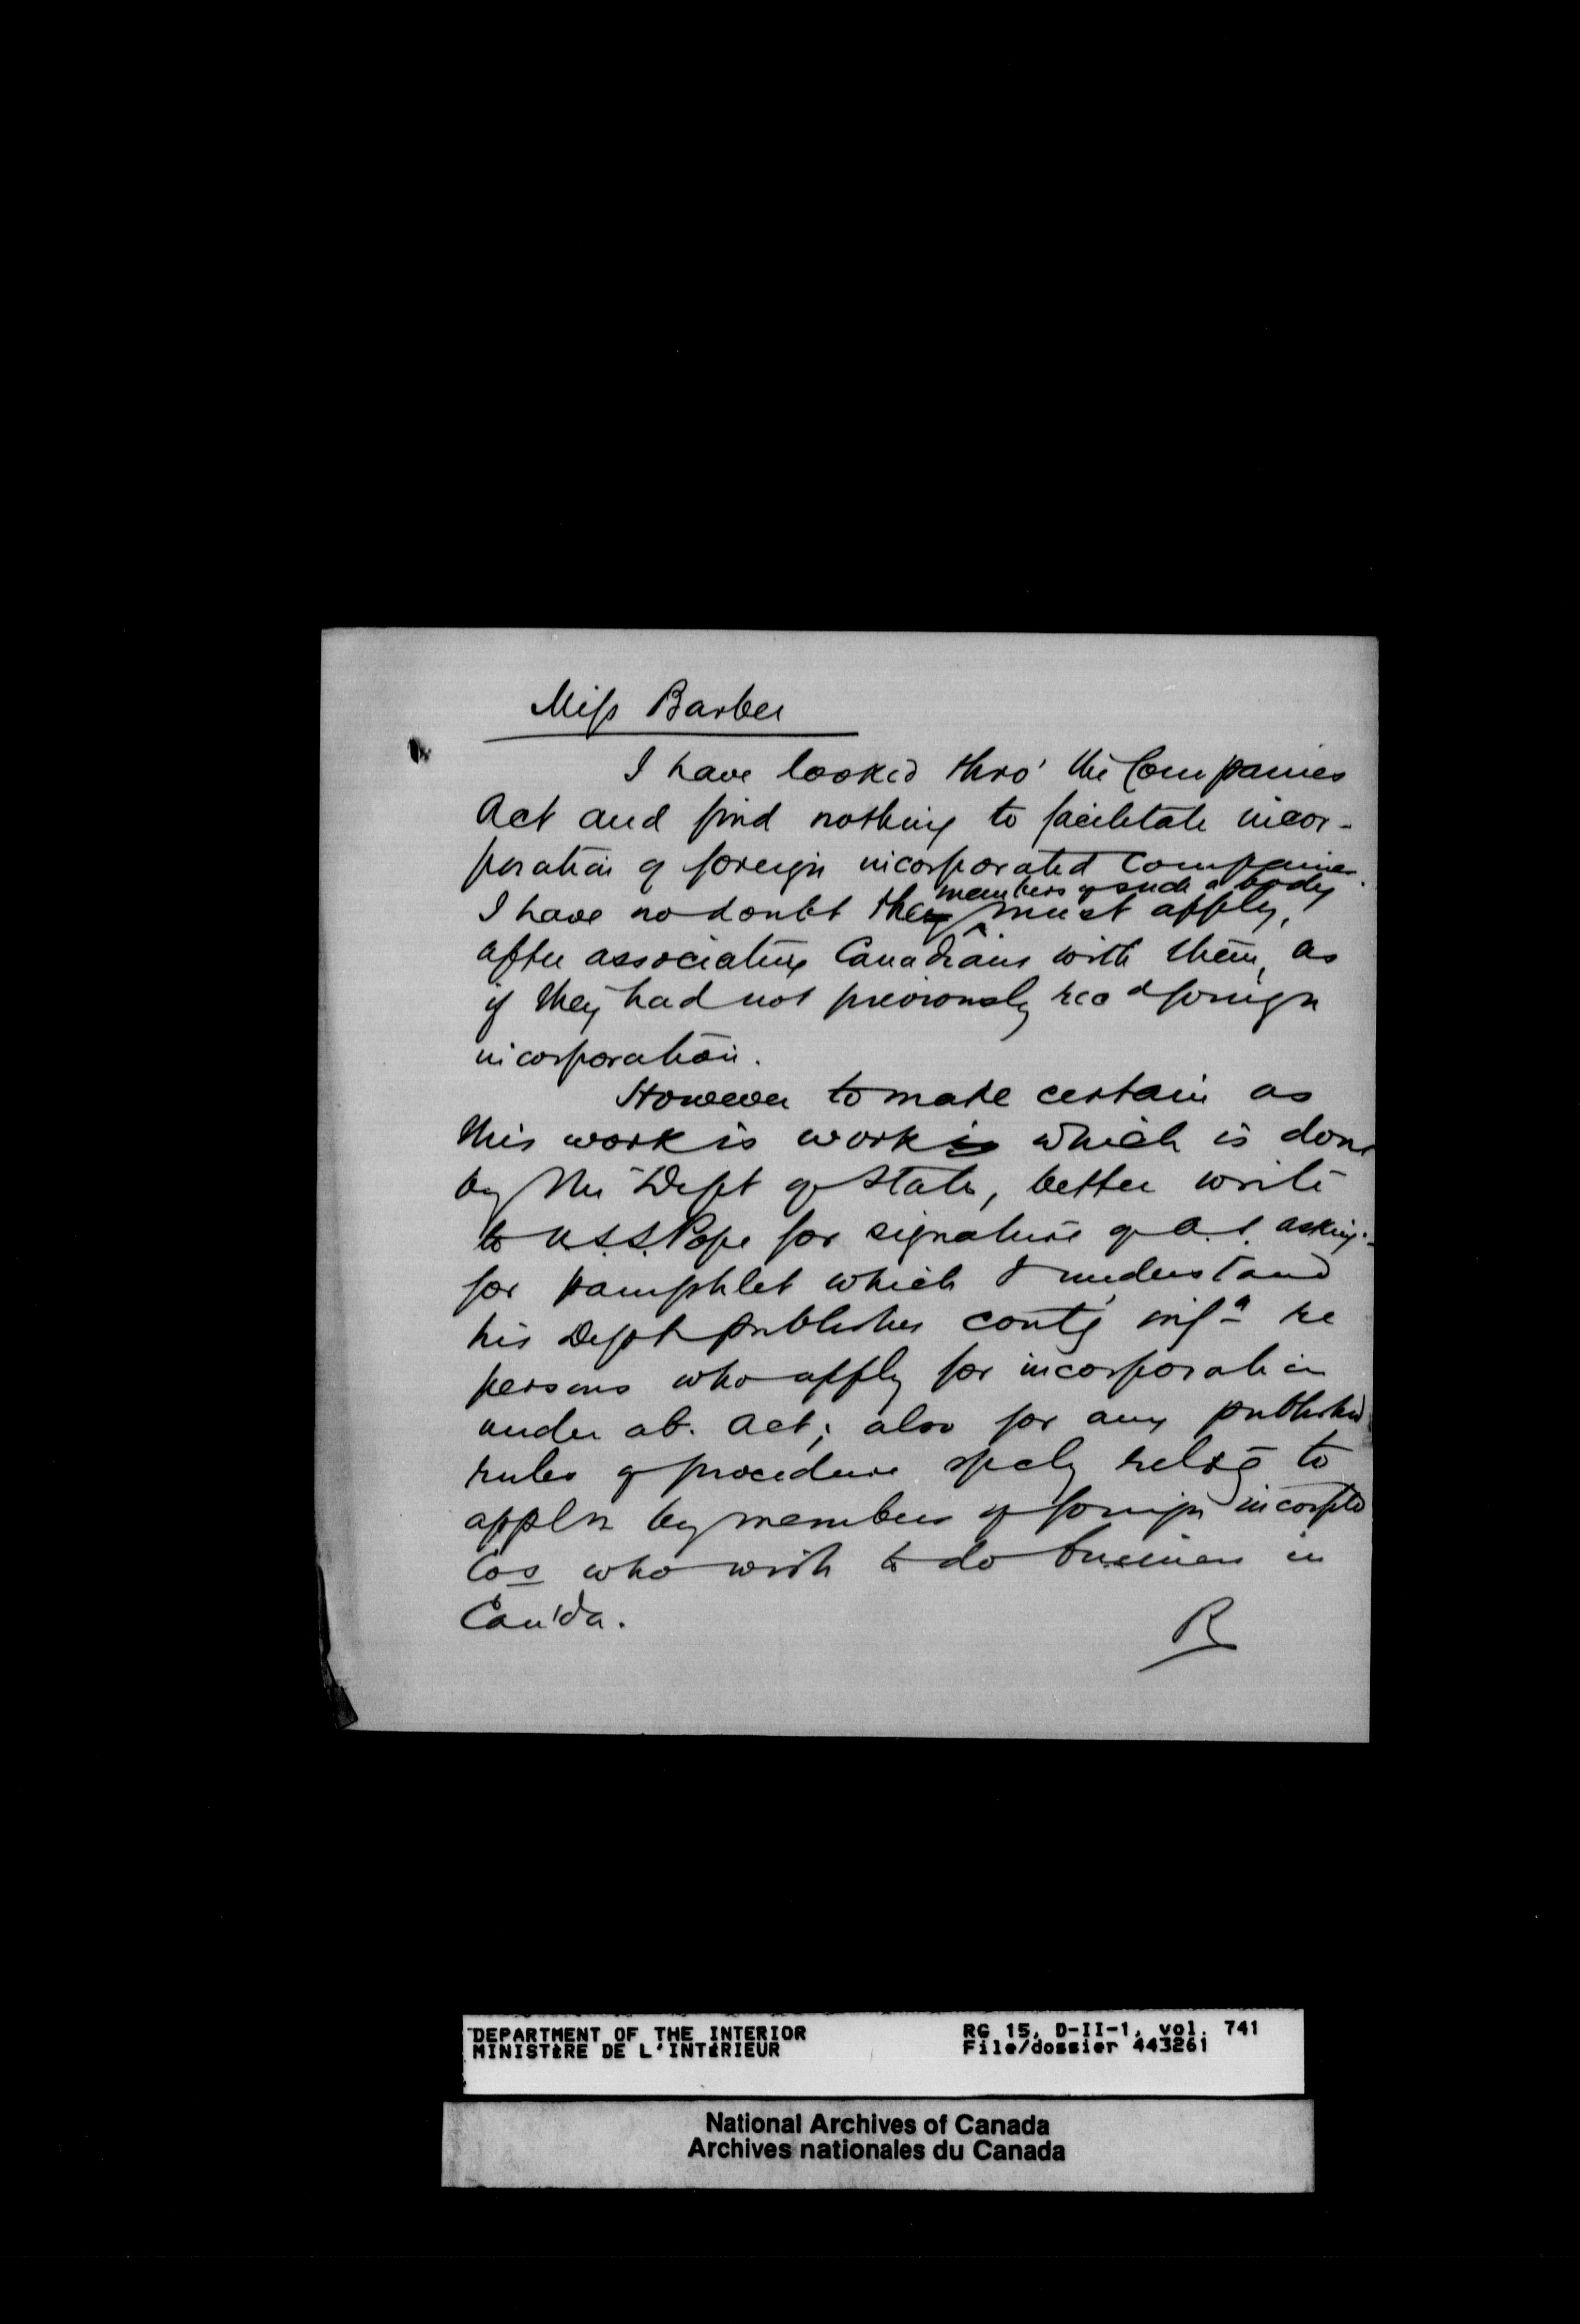 Miss Barber
I have looked thro' the Companies
Act and find nothing to facilitate incor-
poration of foreign incorporated Companies.
members of such a body
I have no doubt they must apply,
after associating Canadians with them, as
if they had not previously recd foreign
incorporation.
However to make certain as
this work is work is which is done
by the Dept of State, better write
to U.S.S. Pope for signature of A.S. asking
for pamphlet which I understand
his Dept publishes contg infn re
persons who apply for incorporation
under ab. Act; also for any published
rules of procedure specly relatg to
appln by members of foreign incorpted
Cos who wish to do business in
Can'da.
R
DEPARTMENT OF THE INTERIOR
MINISTÈRE DE L'INTÉRIEUR
RG 15, D-II-1, vol. 741
File/dossier 443261
National Archives of Canada
Archives nationales du Canada